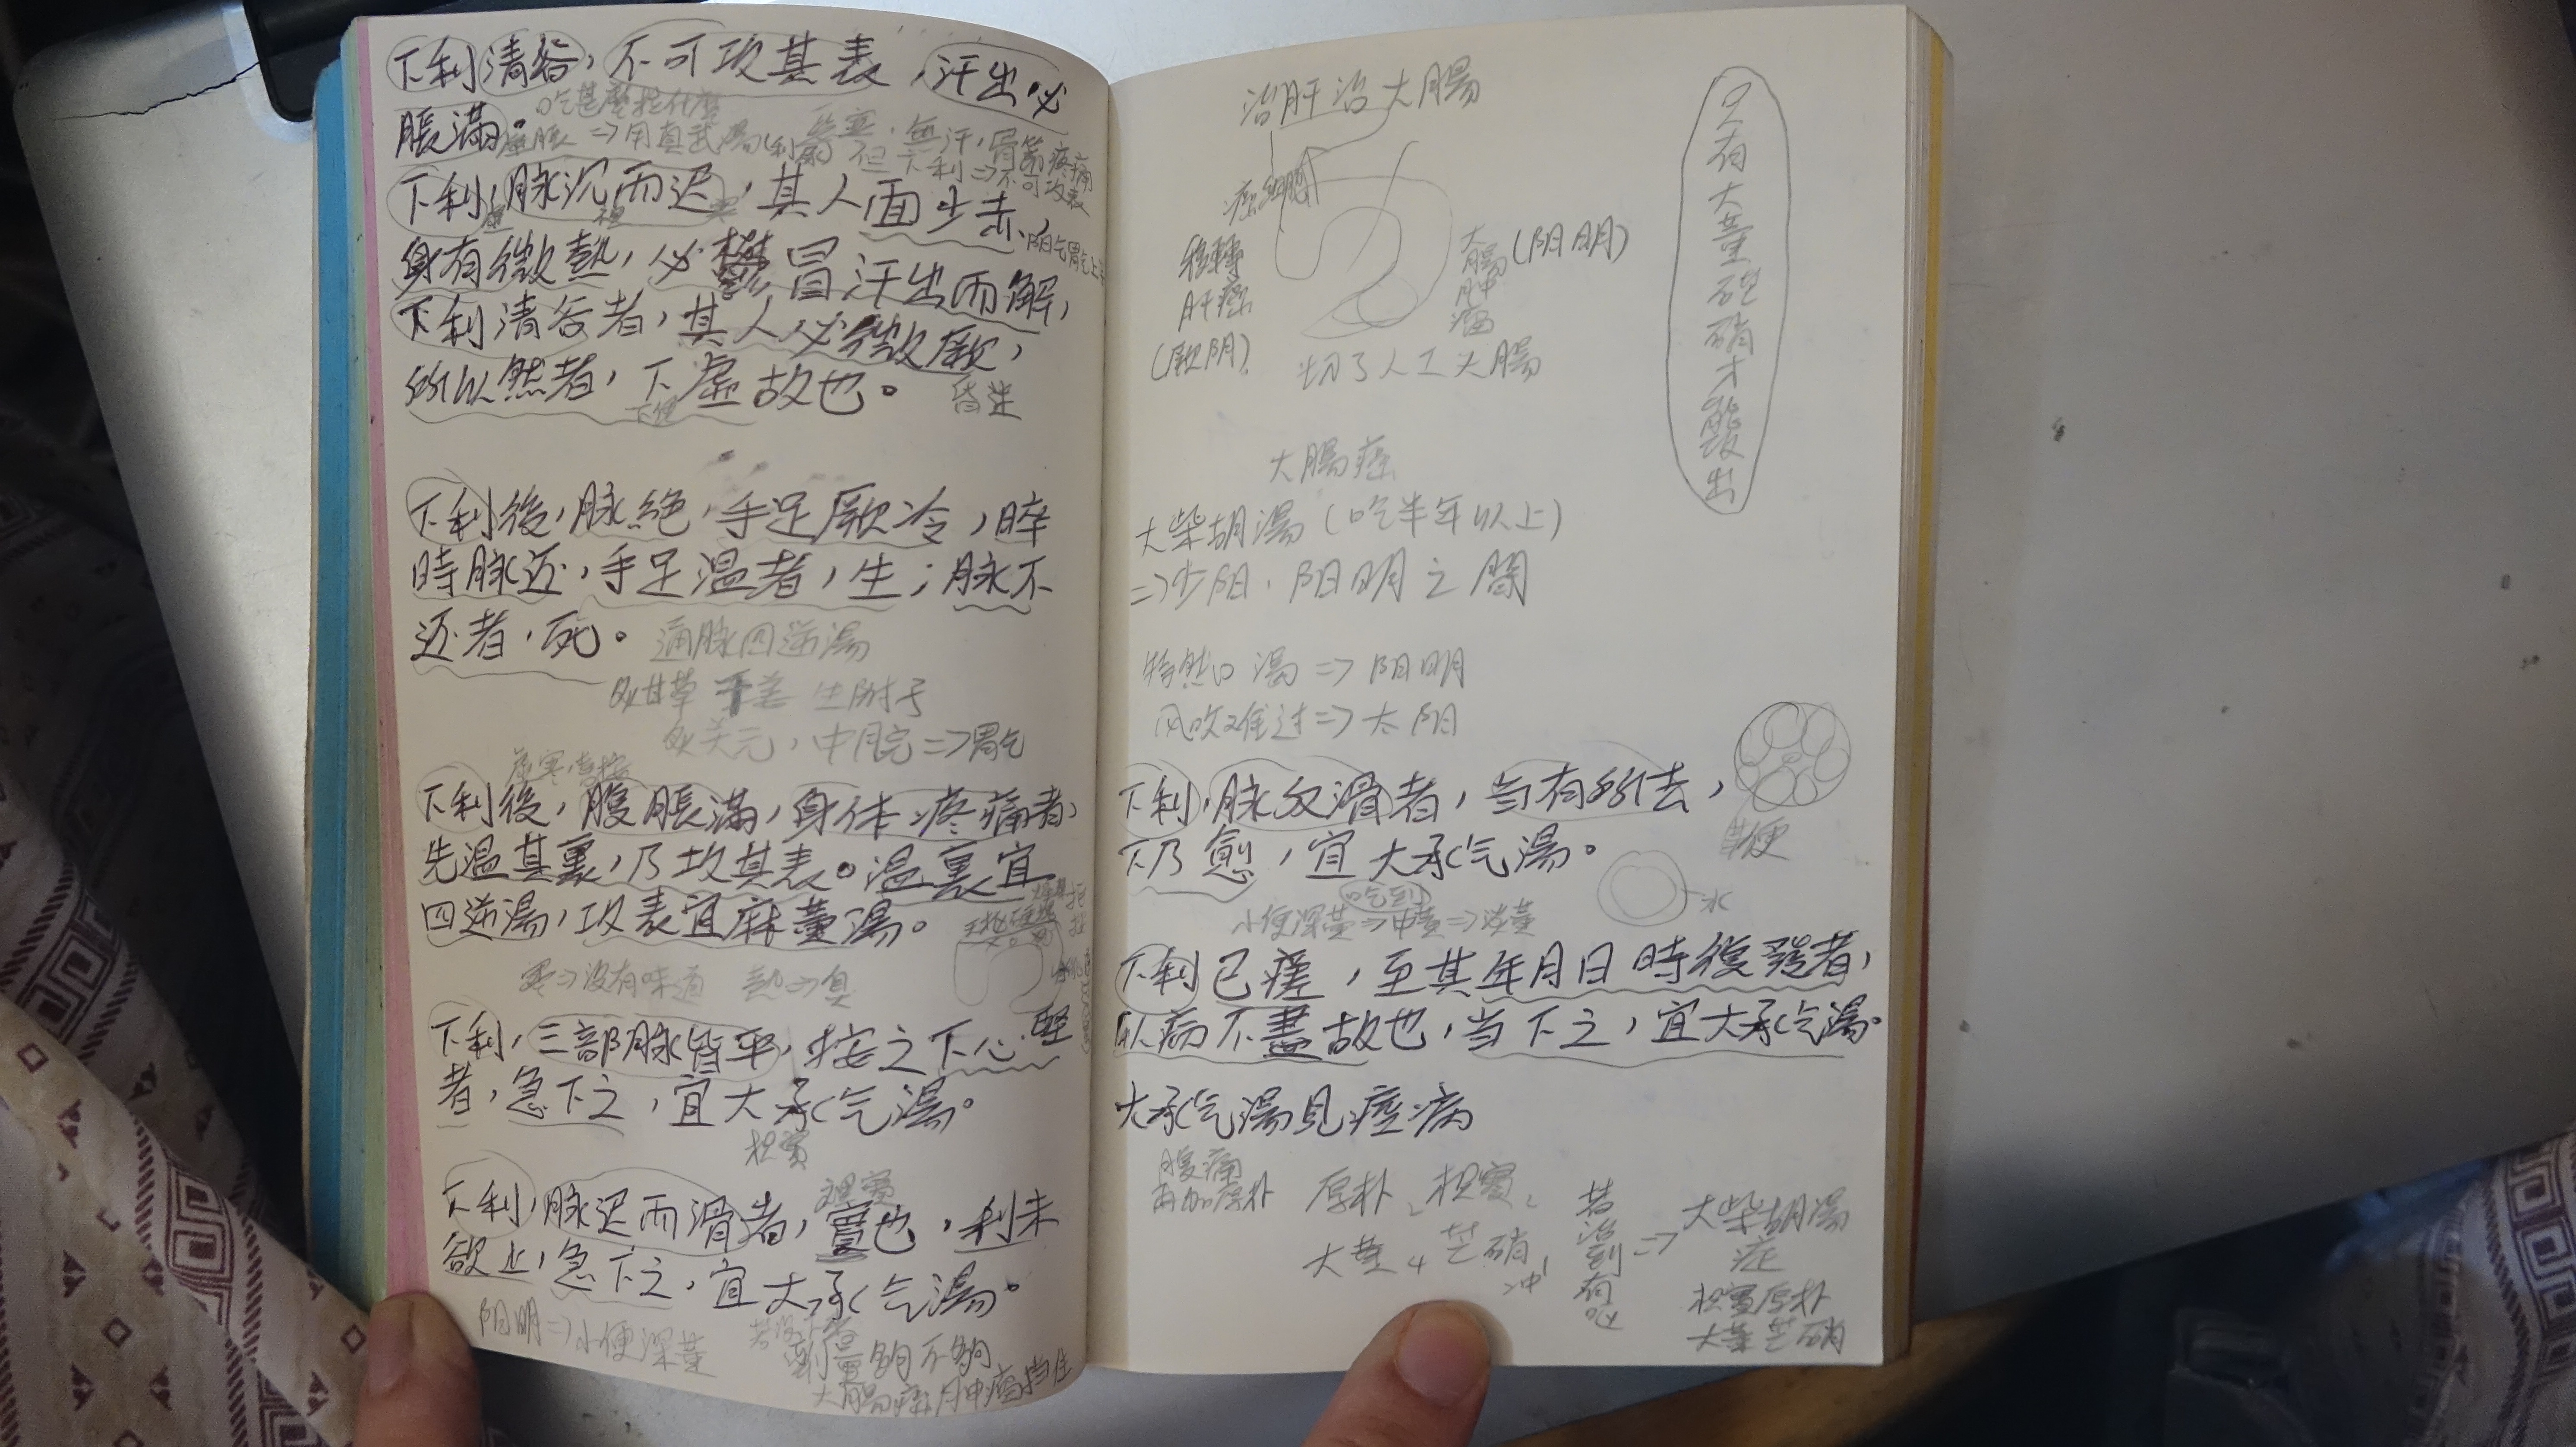 下利清谷，不可攻其表，汗出必
脹滿。
吃甚麼拉什麼
用真武湯
無汗，骨節疼痛
但下利⇒不可攻表
下利，脉沉而迟，其人面少赤、
身有微熱，必鬱冒汗出而解，
下利清谷者，其人必微厥，
所以然者，下虛故也。
昏迷
下利後，脉絕，手足厥冷，晬
時脉还，手足溫者，生；脉不
还者，死。
通脉四逆湯
炙甘草 干姜 生附子
灸关元，中脘⇒胃气
虛寒喜按
下利後，腹脹滿，身体疼痛者，
先溫其裏，乃攻其表。溫裏宜
四逆湯，攻表宜麻黄湯。
寒⇒没有味道 熱⇒臭
下利，三部脉皆平，按之下心坚
者，急下之，宜大承气湯。
枳實
裡實
下利，脉迟而滑者，實也，利未
欲止，急下之，宜大承气湯。
阳明⇒小便深黄
劑量夠不夠
大腸癌，肿瘤挡住
治肝治大腸
癌細胞
移轉
肝癌
(厥阴)
大腸
肿瘤
(阴明)
切了人工大腸
只有大黄硭硝才能攻出
大腸癌
大柴胡湯（吃半年以上）
⇒少阳，阳明之間
特然口渴⇒阳明
风吹难过⇒太阳
下利，脉反滑者，当有所去，
下乃愈，宜大承气湯。
糞便
水
吃到
小便深黄⇒中黄⇒淡黄
下利已瘥，至其年月日時復發者，
以病不盡故也，当下之，宜大承气湯。
大承气湯見痙病
腹痛
再加厚朴
厚朴2 枳實2
大黄4 芒硝1
冲
若治到有吃
⇒大柴胡湯
症
枳實厚朴
大黄芒硝